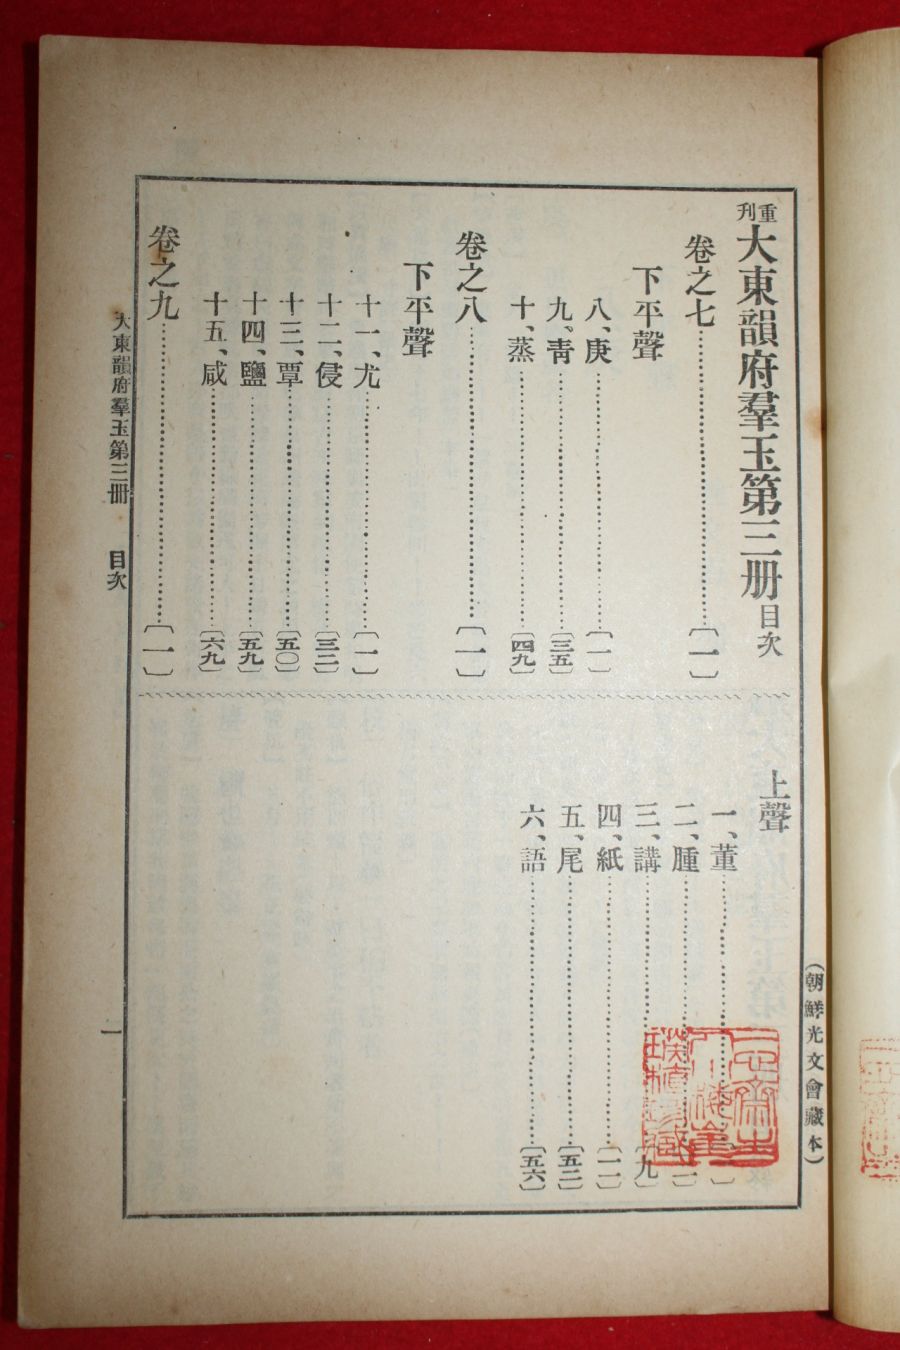 重刊大東韻府羣玉第三册目次
卷之七……〔一〕
下平聲
八、庚……〔一〕
九、靑……〔三五〕
十、蒸……〔四九〕
卷之八……〔一〕
下平聲
十一、尤……〔一〕
十二、侵……〔三二〕
十三、覃……〔五〇〕
十四、鹽……〔五九〕
十五、咸……〔六九〕
卷之九……〔一〕
上聲
一、董……
二、腫……
三、講……〔九〕
四、紙……〔一一〕
五、尾……〔五二〕
六、語……〔五六〕
大東韻府羣玉第三册 目次
一
(朝鮮光文會藏本)